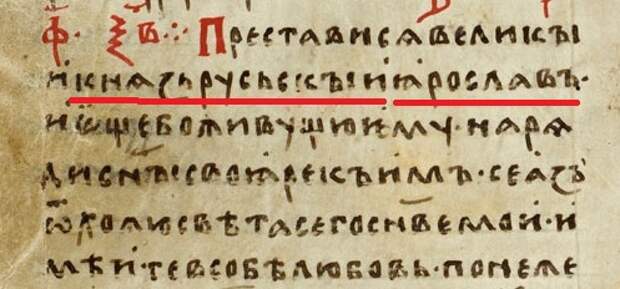 ф · ѯ в ⁘ Преставися великы
и князь русьскыи ꙗрославъ ·
и ѥще бо живущю ѥму · наря
ди сн҃ы своꙗ рекъ имъ · се азъ
ѿхожю свѣта сего сн҃ве мои · и
мѣи · те в собѣ любовь · понеже